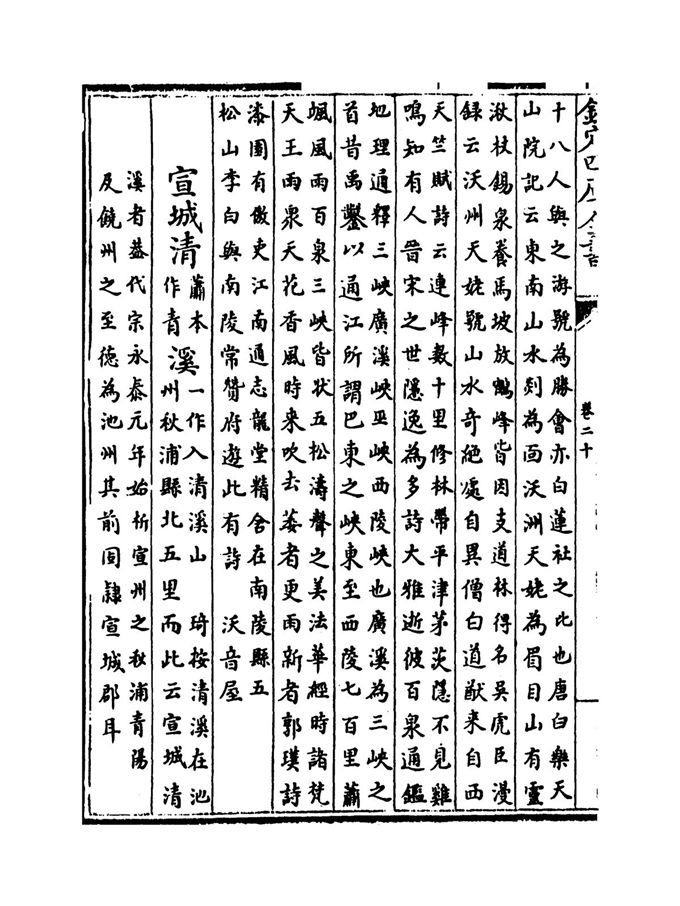 欽定四庫全書
卷二十
十八人與之游號為勝會亦白蓮社之比也唐白樂天
山院記云東南山水剡為面沃洲天姥為眉目山有靈
湫杖錫泉養馬坡放鶴峰皆因支道林得名吳虎臣漫
録云沃州天姥號山水奇絶處自異僧白道猷来自西
天竺賦詩云連峰數十里修林帶平津茅茨隱不見雞
鳴知有人晉宋之世隱逸為多詩大雅逝彼百泉通鑑
地理通釋三峽廣溪峽巫峽西陵峽也廣溪為三峽之
首昔禹鑿以通江所謂巴東之峽東至西陵七百里蕭
颯風雨百泉三峽皆狀五松濤聲之美法華經時諸梵
天王雨衆天花香風時来吹去萎者更雨新者郭璞詩
漆園有傲吏江南通志龍堂精舍在南陵縣五
松山李白與南陵常贊府遊此有詩 沃音屋
宣城清蕭本作青溪一作入清溪山 琦按清溪在池州秋浦縣北五里而此云宣城清
溪者葢代宗永泰元年始析宣州之秋浦青陽
及饒州之至德為池州其前固隸宣城郡耳